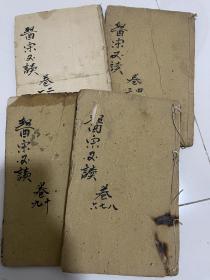 醫宗必讀
卷二
醫宗必讀
卷
醫宗必讀
卷
九十
醫宗必讀
卷
六七八